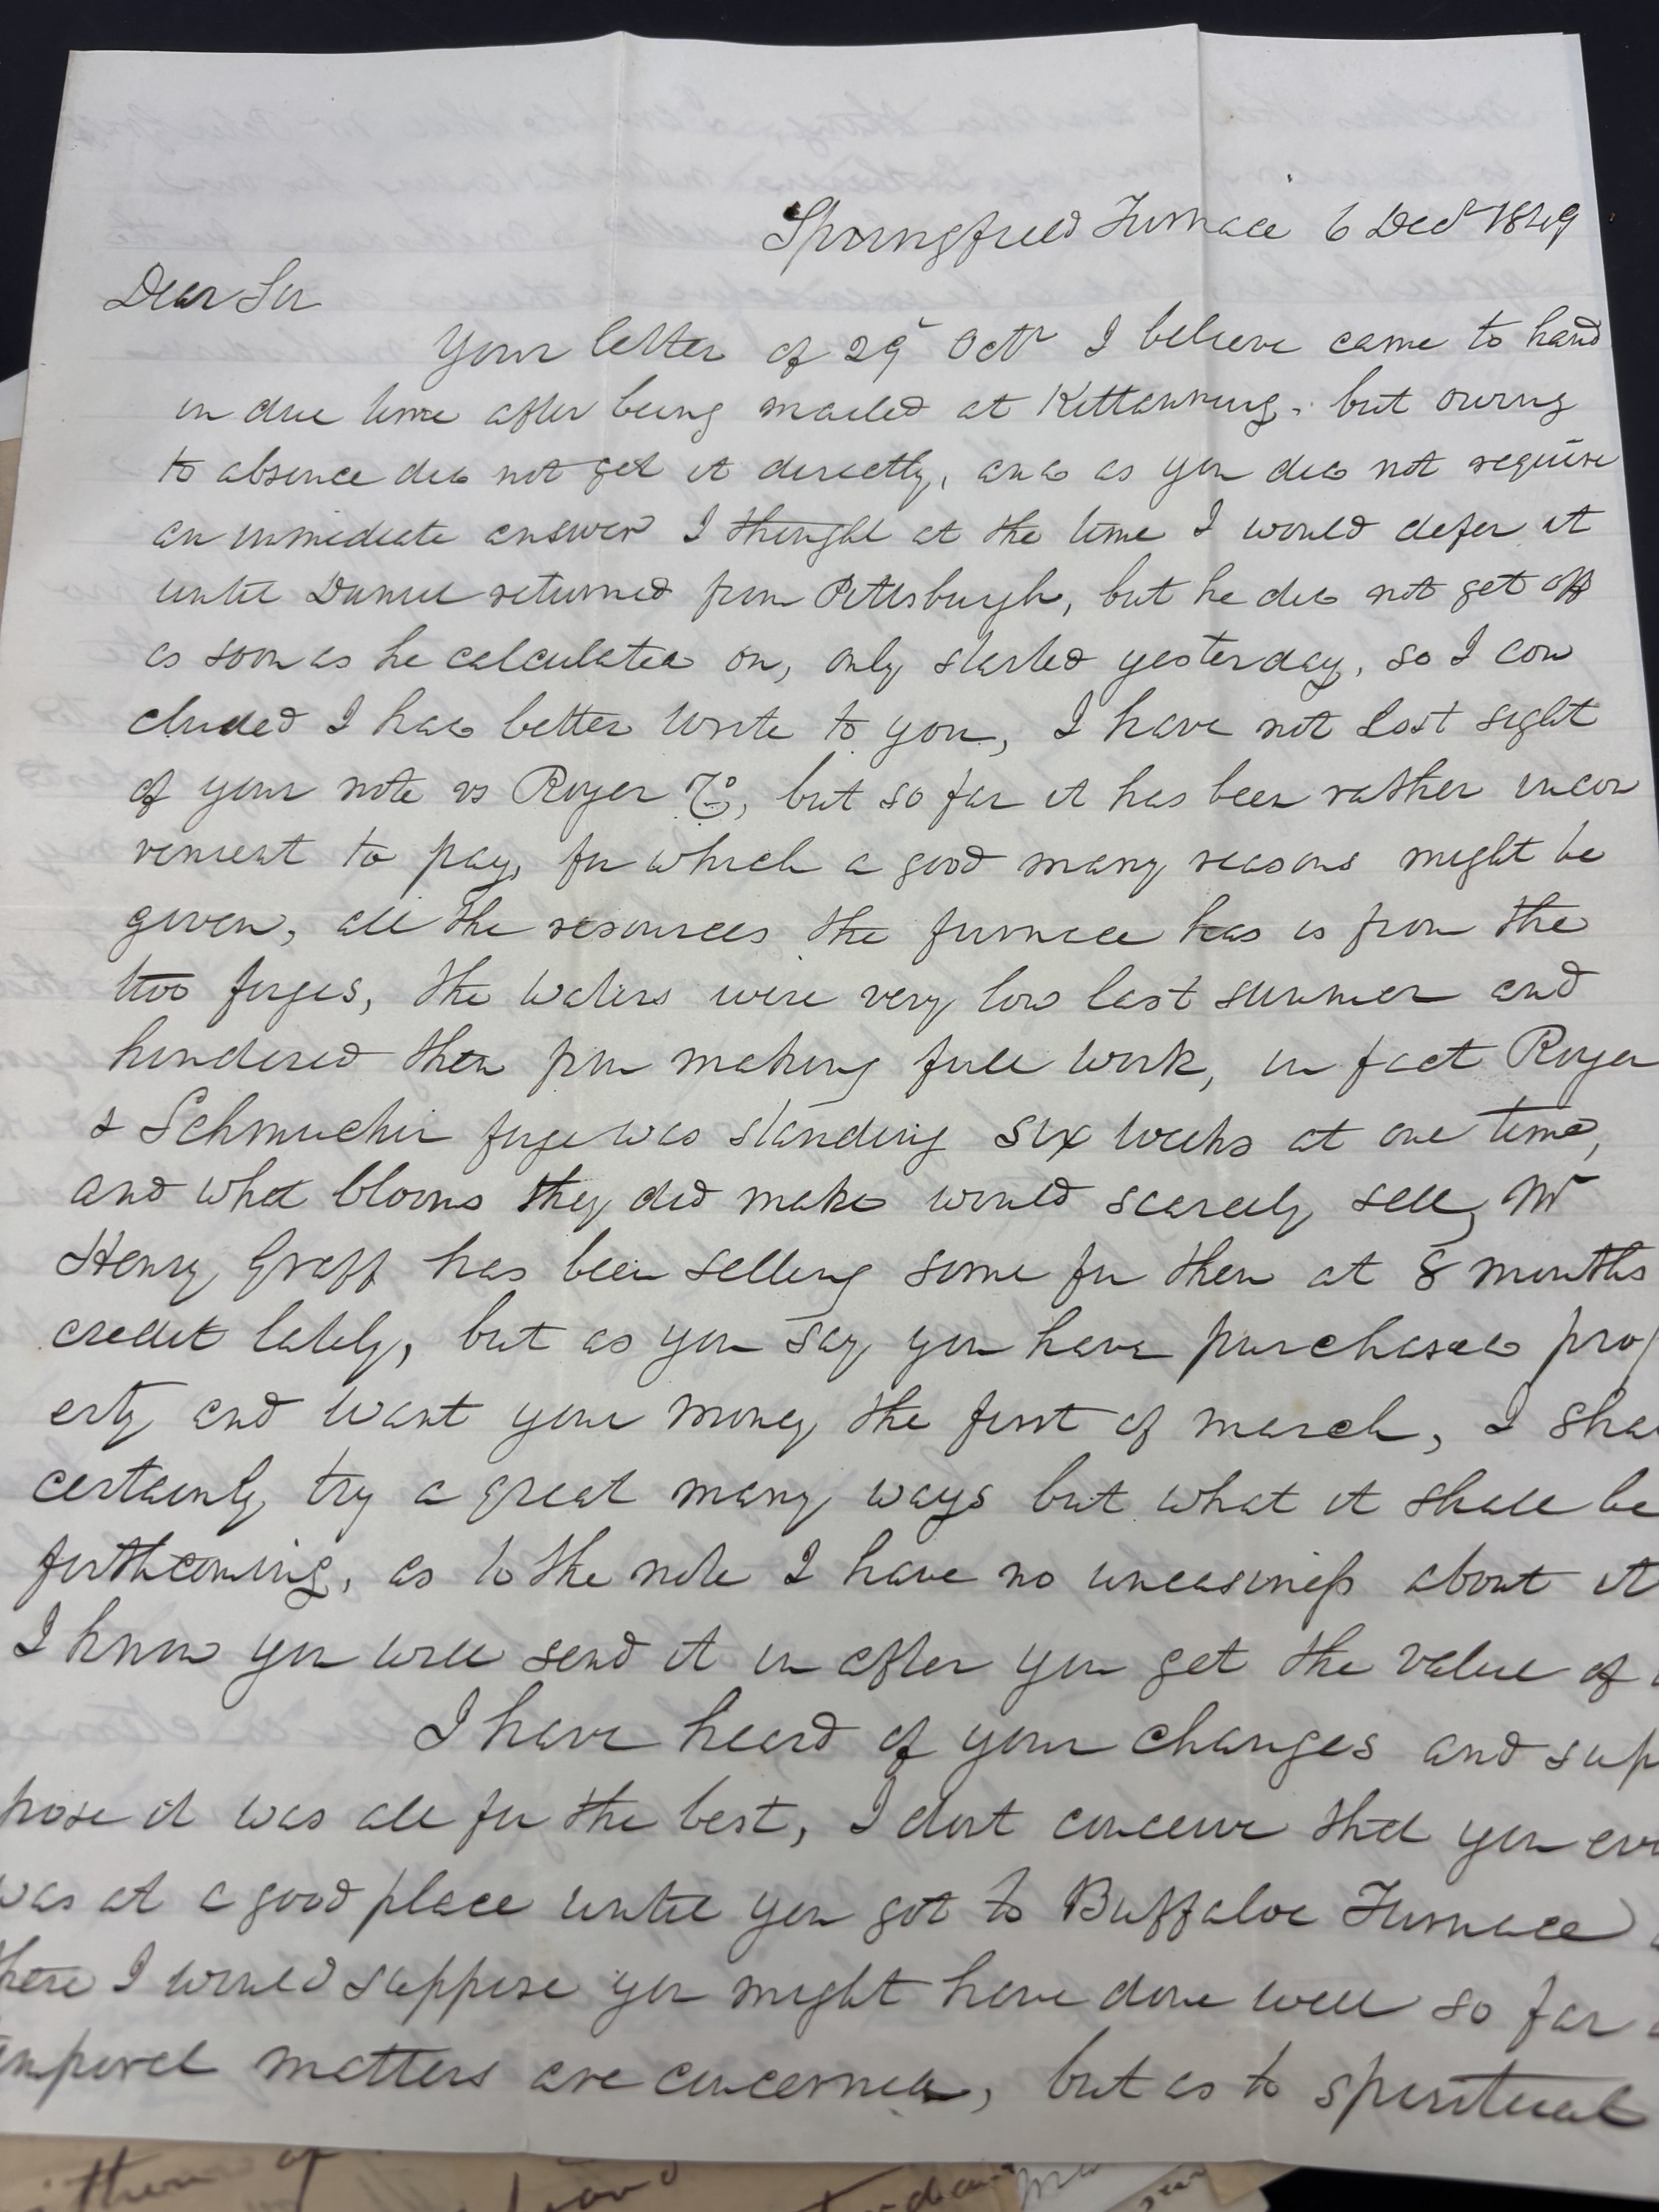 Springfield Furnace 6 Decr 1849
Dear Sir
Your letter of 29 Octr I believe came to hand
in due time after being mailed at Kittanning, but owing
to absence did not get it directly, and as you did not require
an immediate answer I thought at the time I would defer it
until Daniel returned from Pittsburgh, but he did not get off
as soon as he calculated on, only started yesterday, so I con
cluded I had better write to you, I have not lost sight
of your note vs Royer & Co, but so far it has been rather incon
venient to pay, for which a good many reasons might be
given, all the resources the furnace has is from the
two forges, the waters were very low last summer and
hindered them from making full work, in fact Royer
& Schmucker forge was standing six weeks at one time,
and what blooms they did make would scarcely sell, Mr
Henry Graff has been selling some for them at 8 months
credit lately, but as you say you have purchased prop
erty and want your money the first of march, I sha
certainly try a great many ways but what it shall be
forthcoming, as to the note I have no uneasiness about it
I know you will send it in after you get the value of
I have heard of your changes and sup
pose it was all for the best, I dont conceive that you eve
was at a good place until you got to Buffaloe Furnace
there I would suppose you might have done well so far
temporel matters are concerned, but as to spiritual
them of